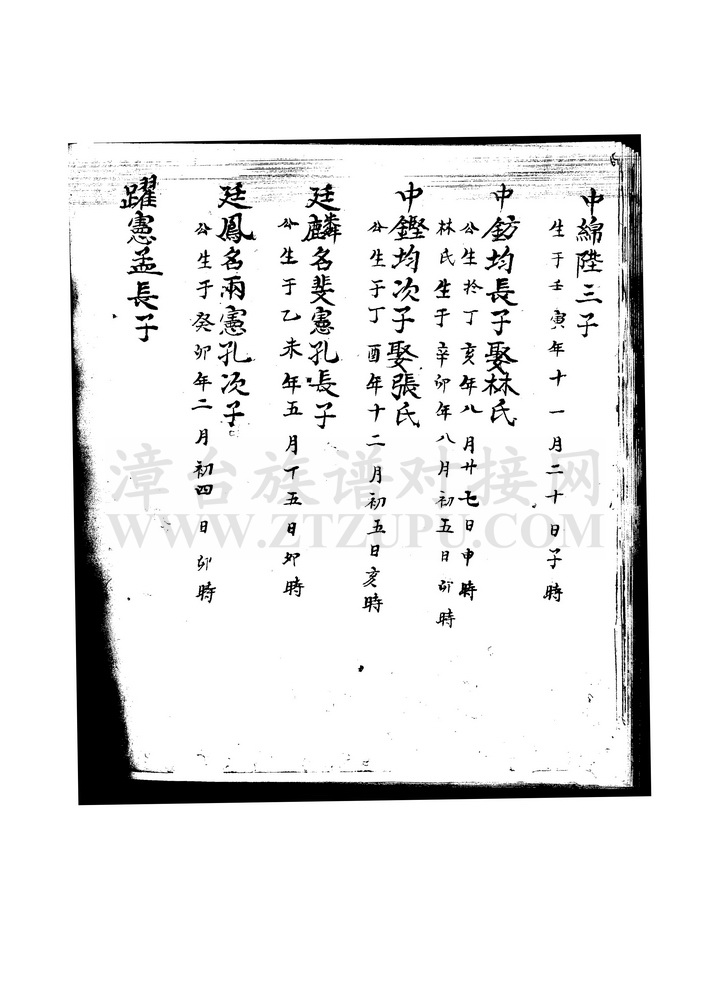 中綿陞三子
生于壬寅年十一月二十日子時
中鈁均長子娶林氏
公生於丁亥年八月廿七日申時
林氏生于辛卯年八月初五日卯時
中鏗均次子娶張氏
公生于丁酉年十二月初五日亥時
廷麟名斐憲孔長子
公生于乙未年五月丁五日卯時
廷鳳名兩憲孔次子
公生于癸卯年二月初四日卯時
躍憲孟長子
漳台族谱对接网
WWW.ZTZUPU.COM